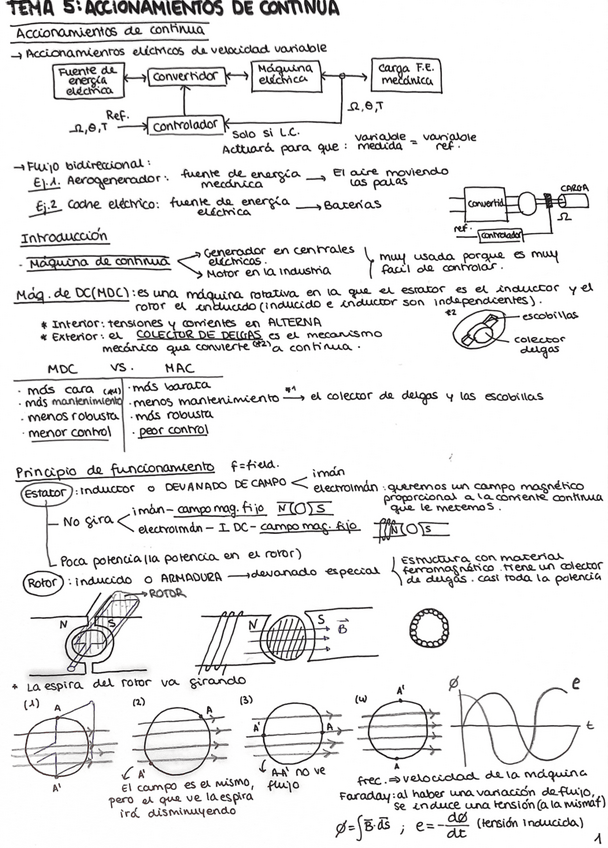 TEMA 5: ACCIONAMIENTOS DE CONTINUA
Accionamientos de continua
→ Accionamientos eléctricos de velocidad variable
Fuente de energía eléctrica
Convertidor
Máquina eléctrica
Carga F.E. mecánica
Ω,θ,T
Ref.
Ω,θ,T → Controlador
Solo si L.C.
Actuará para que: variable medida = variable ref.
→ Flujo bidireccional:
Ej.1. Aerogenerador: fuente de energía mecánica → El aire moviendo las palas
Ej.2 Coche eléctrico: fuente de energía eléctrica → Baterías
Convertid.
CARGA
Ω
ref.
controlador
Introducción
· Máquina de continua
Generador en centrales eléctricas.
Motor en la industria
muy usada porque es muy fácil de controlar.
Máq. de DC(MDC): es una máquina rotativa en la que el estator es el inductor y el
rotor el inducido (inducido e inductor son independientes).
* Interior: tensiones y corrientes en ALTERNA
* Exterior: el COLECTOR DE DELGAS es el mecanismo
mecánico que convierte (*2) a continua.
*2
escobillas
colector delgas
MDC VS. MAC
· más cara (*1) · más barata
· más mantenimiento · menos mantenimiento *1→ el colector de delgas y las escobillas
· menos robusta · más robusta
· menor control · peor control
Principio de funcionamiento f=field.
Estator: inductor o DEVANADO DE CAMPO
imán
electroimán: queremos un campo magnético
proporcional a la corriente continua
que le metemos.
No gira
imán – campo mag. fijo N(O)S
electroimán – I DC – campo mag. fijo N(O)S
Poca potencia (la potencia en el rotor)
Rotor: inducido o ARMADURA → devanado especial
Estructura con material
ferromagnético. Tiene un colector
de delgas. casi toda la potencia
ROTOR
N S
N S B
* La espira del rotor va girando
(1) (2) (3) (4)
A A'
A A'
A' A
A' A
ϕ e t
El campo es el mismo,
pero el que ve la espira
irá disminuyendo
A-A' no ve
flujo
frec. ⇒ velocidad de la máquina
Faraday: al haber una variación de flujo,
se induce una tensión (a la misma f)
ϕ=∫B·ds ; e=-dϕ/dt (tensión inducida)
1